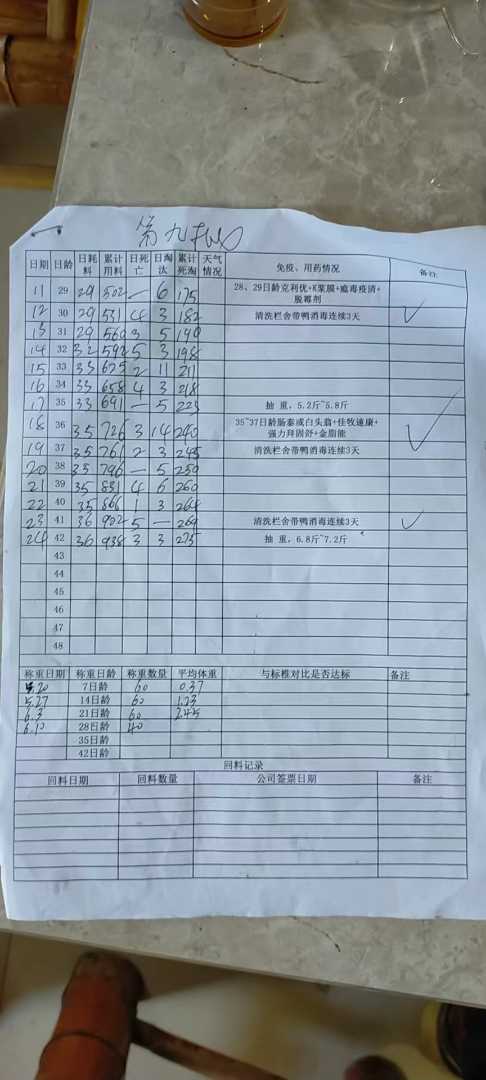 第九
日期 日龄 日耗料 累计用料 日死亡 日淘汰 累计死淘 天气情况 免疫、用药情况 备注
11 29 29 502 — 6 175 28、29日龄克利优+K浆膜+瘟毒疫清+脱霉剂
12 30 29 531 4 3 182 清洗栏舍带鸭消毒连续3天 ✓
13 31 29 560 3 5 190
14 32 32 592 5 3 198
15 33 33 625 2 11 211
16 34 33 658 4 3 218
17 35 33 691 — 5 223 抽 重，5.2斤~5.8斤
18 36 35 726 3 14 240 35~37日龄肠泰或白头翁+佳牧速康+强力拜固舒+金脂能 ✓
19 37 35 761 2 3 245 清洗栏舍带鸭消毒连续3天
20 38 35 796 — 5 250
21 39 35 831 4 6 260
22 40 35 866 1 3 264
23 41 36 902 5 — 269 清洗栏舍带鸭消毒连续3天 ✓
24 42 36 938 3 3 275 抽 重，6.8斤~7.2斤
43
44
45
46
47
48
称重日期 称重日龄 称重数量 平均体重 与标椎对比是否达标 备注
5.20 7日龄 60 0.37
5.27 14日龄 60 1.23
6.3 21日龄 60 2.45
6.10 28日龄 40
35日龄
42日龄
回料记录
回料日期 回料数量 公司签票日期 备注